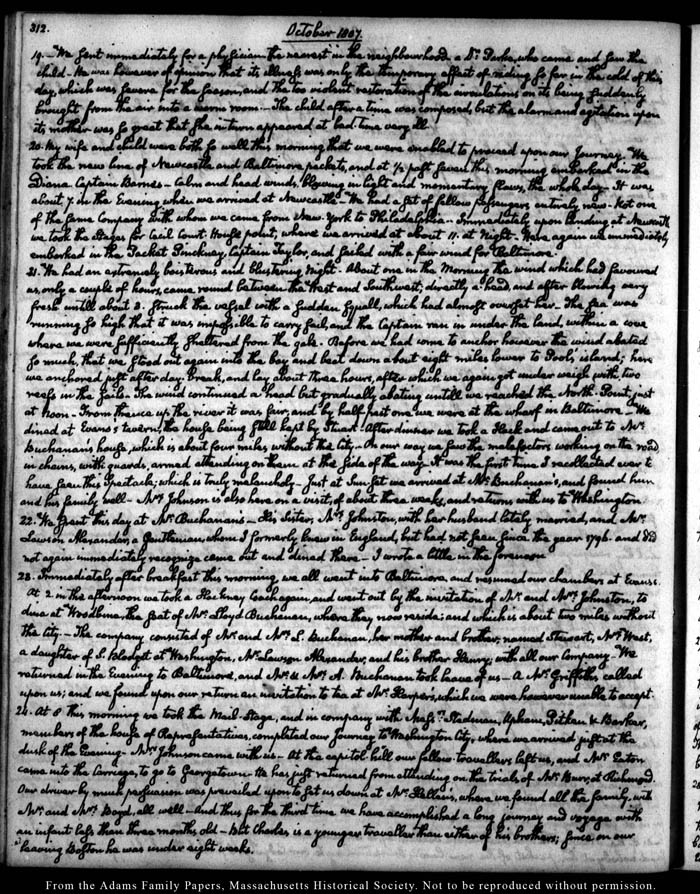 312.
October 1807.
19. We sent immediately for a physician the nearest in the neighbourhood a Dr. Parke, who came and saw the
child. He was however of opinion that its illness was only the temporary effect of riding so far in the cold of this
day, which was severe for the season, and the too violent restoration of the circulations on its being suddenly
brought from the air into a warm room. The child after a time was composed, but the alarm and agitation upon
its mother was so great that she in turn appeared at bed time very ill.
20. My wife and child were both so well this morning that we were enabled to proceed upon our Journey. We
took the new line of Newcastle and Baltimore packets, and at ½ past seven this morning embarked in the
Diana Captain Barnes. Calm and head winds, blowing in light and momentary flaws, the whole day. It was
about 7 in the Evening when we arrived at Newcastle. We had a set of fellow passengers entirely new. Not one
of the same Company with whom we came from New York to Philadelphia. Immediately upon landing at Newcastle
we took the Stages for Cecil Court House point, where we arrived at about 11. at Night. Here again we immediately
embarked in the Packet Pinckney, Captain Taylor, and sailed with a fair wind for Baltimore.
21. We had an extremely boisterous and blustering Night. About one in the Morning the wind which had favoured
us only a couple of hours, came round between the West and Southwest; directly a head, and after blowing very
fresh untill about 3. struck the vessel with a sudden squall, which had almost overset her. The sea was
running so high that it was impossible to carry sail, and the Captain ran in under the land, within a cove
where we were sufficiently sheltered from the gale. Before we had come to anchor however the wind abated
so much, that we stood out again into the bay and beat down about eight miles lower to Pool's island; here
we anchored just after day-break, and lay about three hours, after which we again got under weigh with two
reefs in the sails. The wind continued a head but gradually abating untill we reached the North-Point, just
at Noon. From thence up the river it was fair, and by half past one we were at the wharf in Baltimore. We
dined at Evans's tavern, the house being still kept by Stuart. After dinner we took a Hack and came out to Mr.
Buchanan's house, which is about four miles without the City. On our way we saw the malefactors, working on the road
in chains, with guards, armed attending on them at the side of the way. It was the first time I recollected ever to
have seen this spectacle, which is truly melancholy. Just at Sun set we arrived at Mr. Buchanan's, and found him
and his family well. Mrs. Johnson is also here on a visit, of about three weeks, and returns with us to Washington.
22. We spent this day at Mr. Buchanan's. His Sister, Mrs. Johnston, with her husband lately married, and Mr.
Lawson Alexander, a Gentleman, whom I formerly knew in England, but had not seen since the year 1796. and did
not again immediately recognize came out and dined there. I wrote a little in the forenoon.
23. Immediately after breakfast this morning, we all went into Baltimore, and resumed our chambers at Evans's.
At 2 in the afternoon we took a Hackney Coach again, and went out by the invitation of Mr. and Mrs. Johnston, to
dine at Woodbine, the seat of Mr. Lloyd Buchanan, where they now reside; and which is about two miles without
the City. The company consisted of Mr. and Mrs. L. Buchanan, her mother and brother, named Stewart, Mrs. West,
a daughter of S. Blodget at Washington, Mr. Lawson Alexander, and his brother Henry, with all our Company. We
returned in the Evening to Baltimore, and Mr. & Mrs. A. Buchanan took leave of us. A Mr. Griffiths called
upon us; and we found upon our return an invitation to tea at Mr. Harper's, which we were however unable to accept.
24. At 8 this morning we took the Mail-Stage, and in company with Messrs. Stedman, Upham, Pitkin & Barker,
members of the house of Representatives, completed our Journey to Washington City, where we arrived just at the
dusk of the Evening. Mrs. Johnson came with us. At the capitol-hill our fellow-travellers left us, and Mr. Eaton
came into the Carriage, to go to Georgetown. He has just returned from attending on the trials of Mr. Burr, at Richmond.
Our driver by much persuasion was prevailed upon to set us down at Mr. Hellen's, where we found all the family, with
Mr. and Mrs. Boyd, all well. And thus for the third time we have accomplished a long journey and voyage with
an infant less than three months old. But Charles is a younger traveller than either of his brothers; since on our
leaving Boston he was under eight weeks.
From the Adams Family Papers, Massachusetts Historical Society. Not to be reproduced without permission.